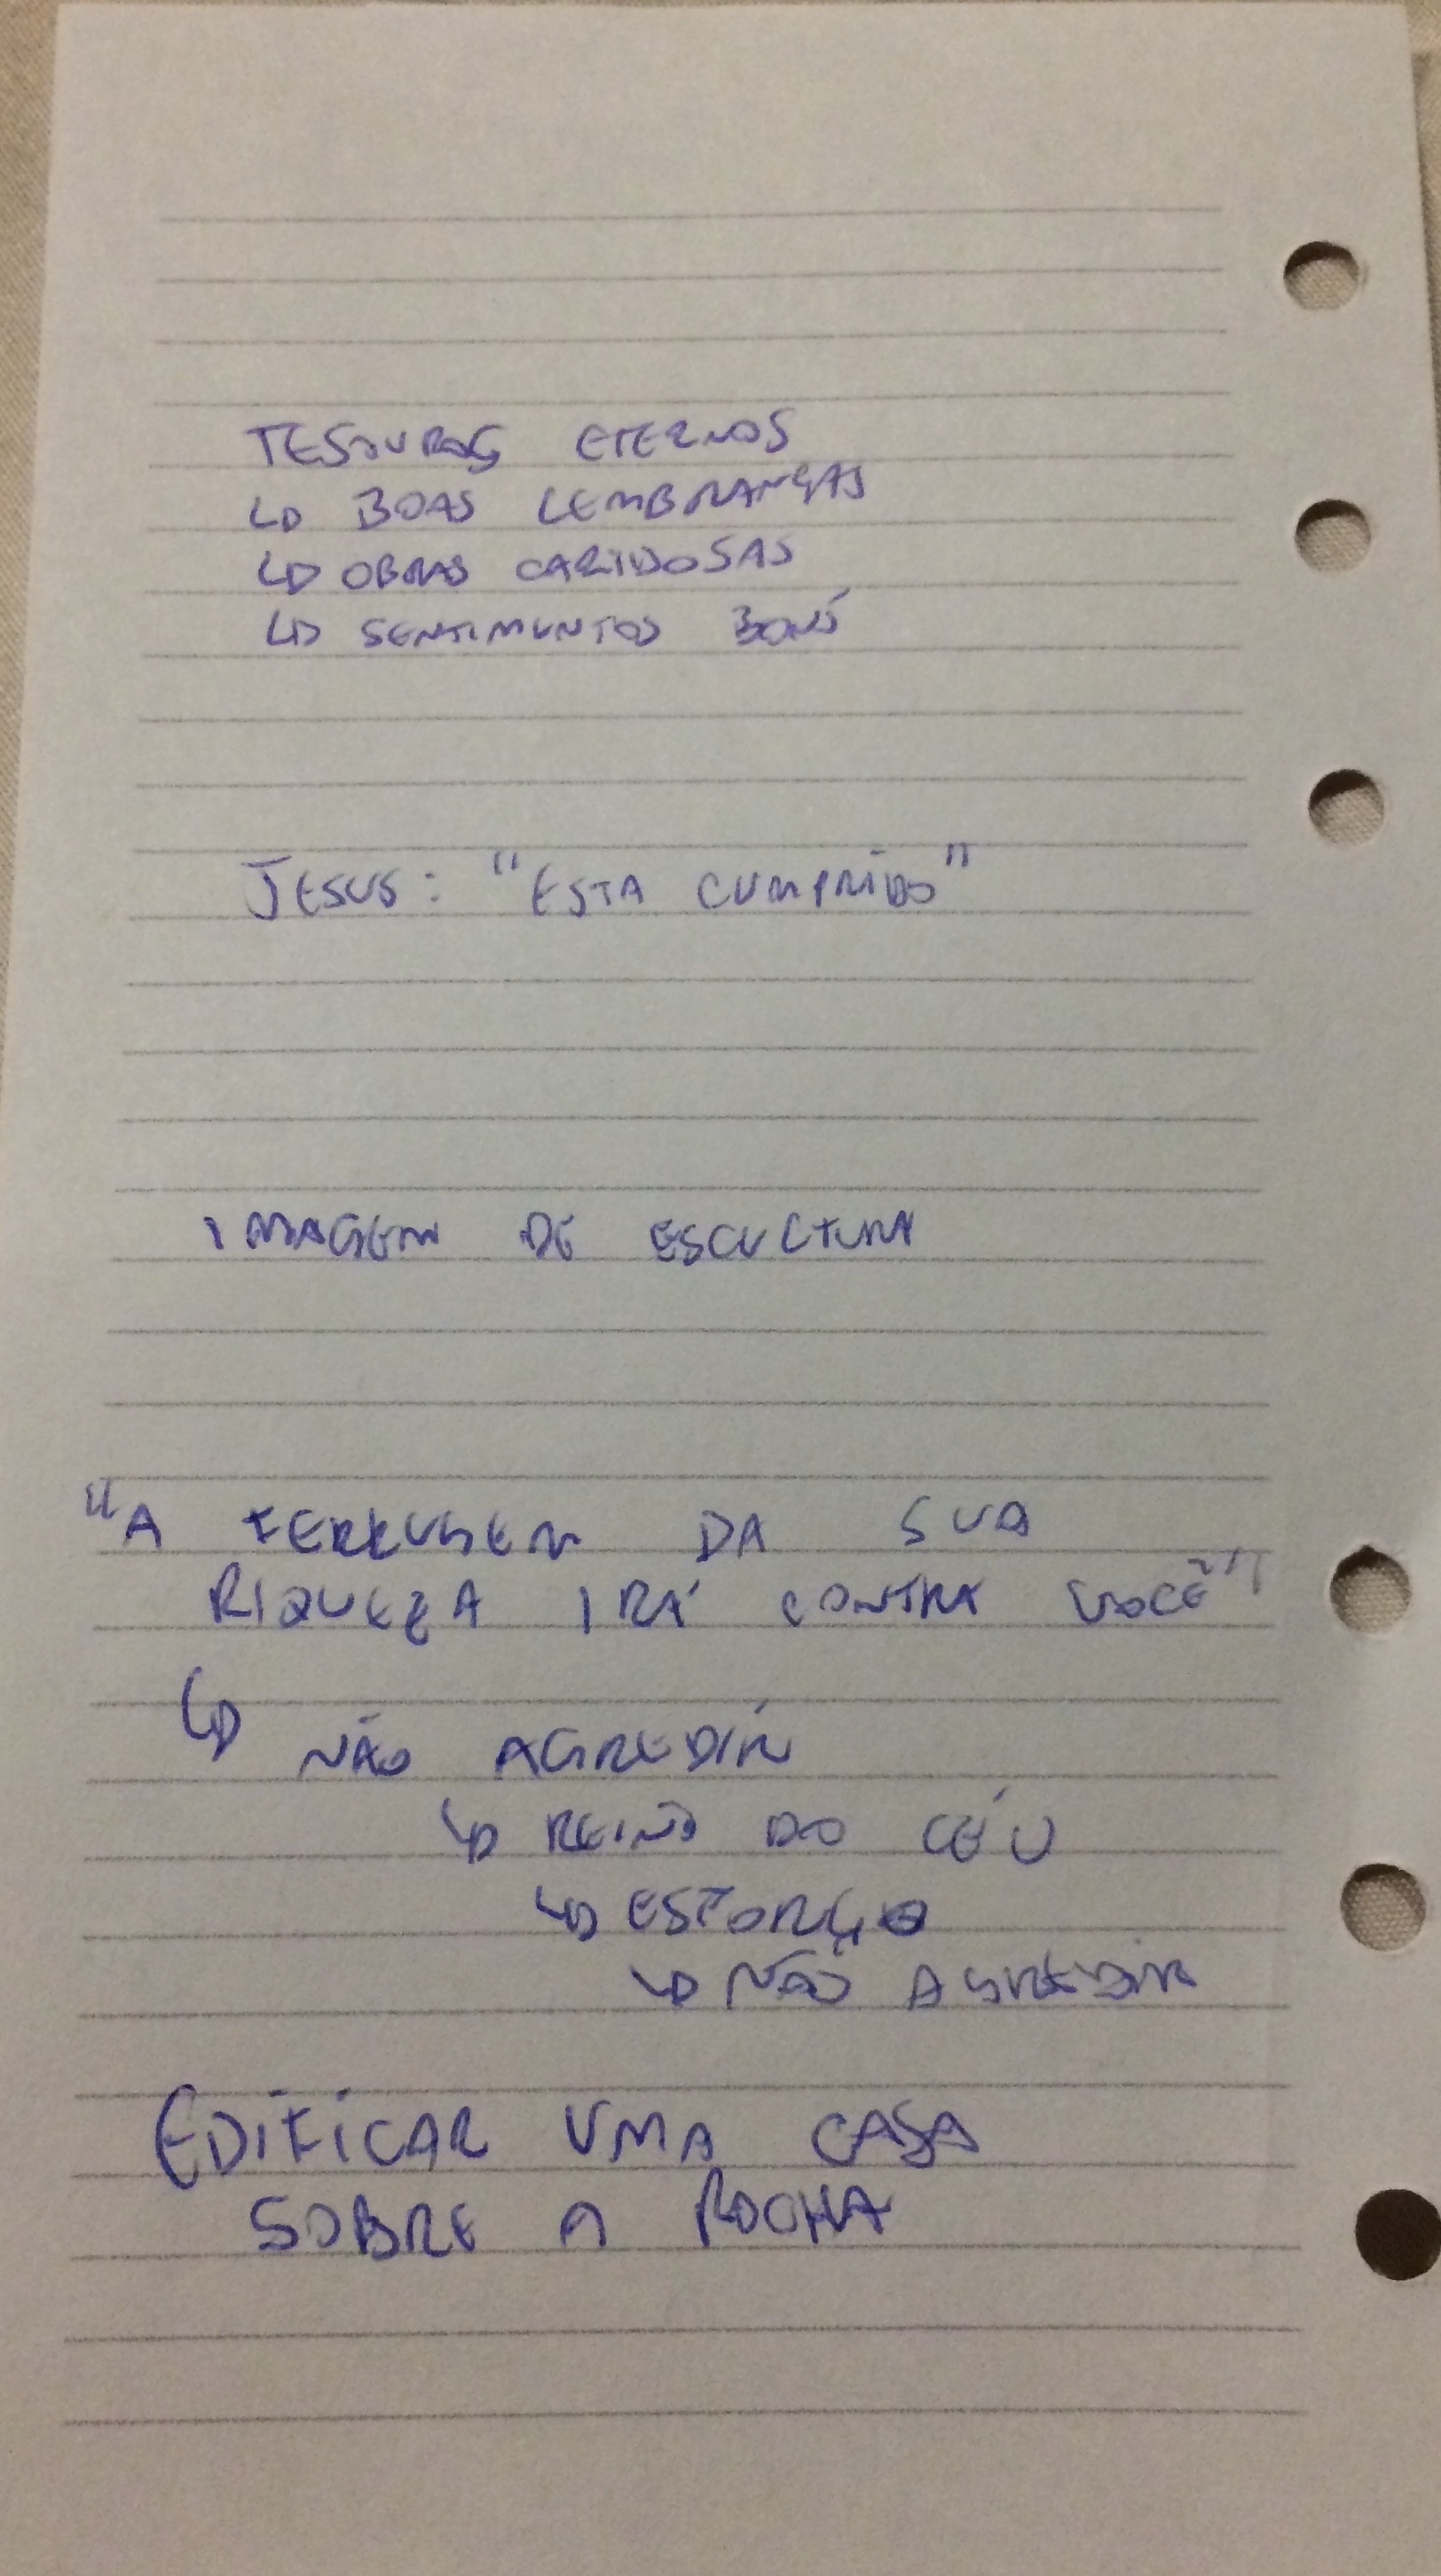 TESOUROS ETERNOS
↳ BOAS LEMBRANÇAS
↳ OBRAS CARIDOSAS
↳ SENTIMENTOS BONS
JESUS: "ESTA CUMPRIDO"
IMAGEM DE ESCULTURA
"A FERRUGEM DA SUA
RIQUEZA IRÁ CONTRA VOCÊ"
↳ NÃO AGREDIR
↳ REINO DO CÉU
↳ ESFORÇO
↳ NÃO AGREDIR
EDIFICAR UMA CASA
SOBRE A ROCHA